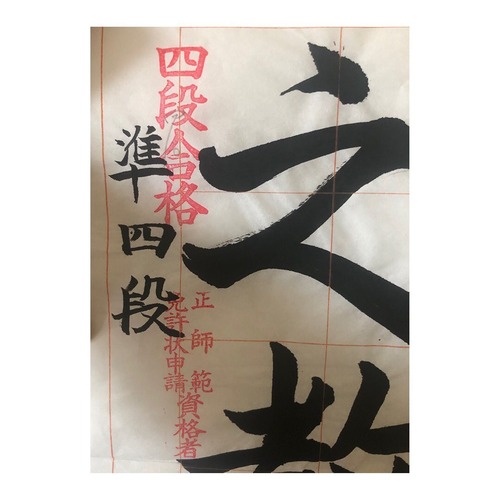 之教
四段合格
正師範
免許状申請
資格者
準四段